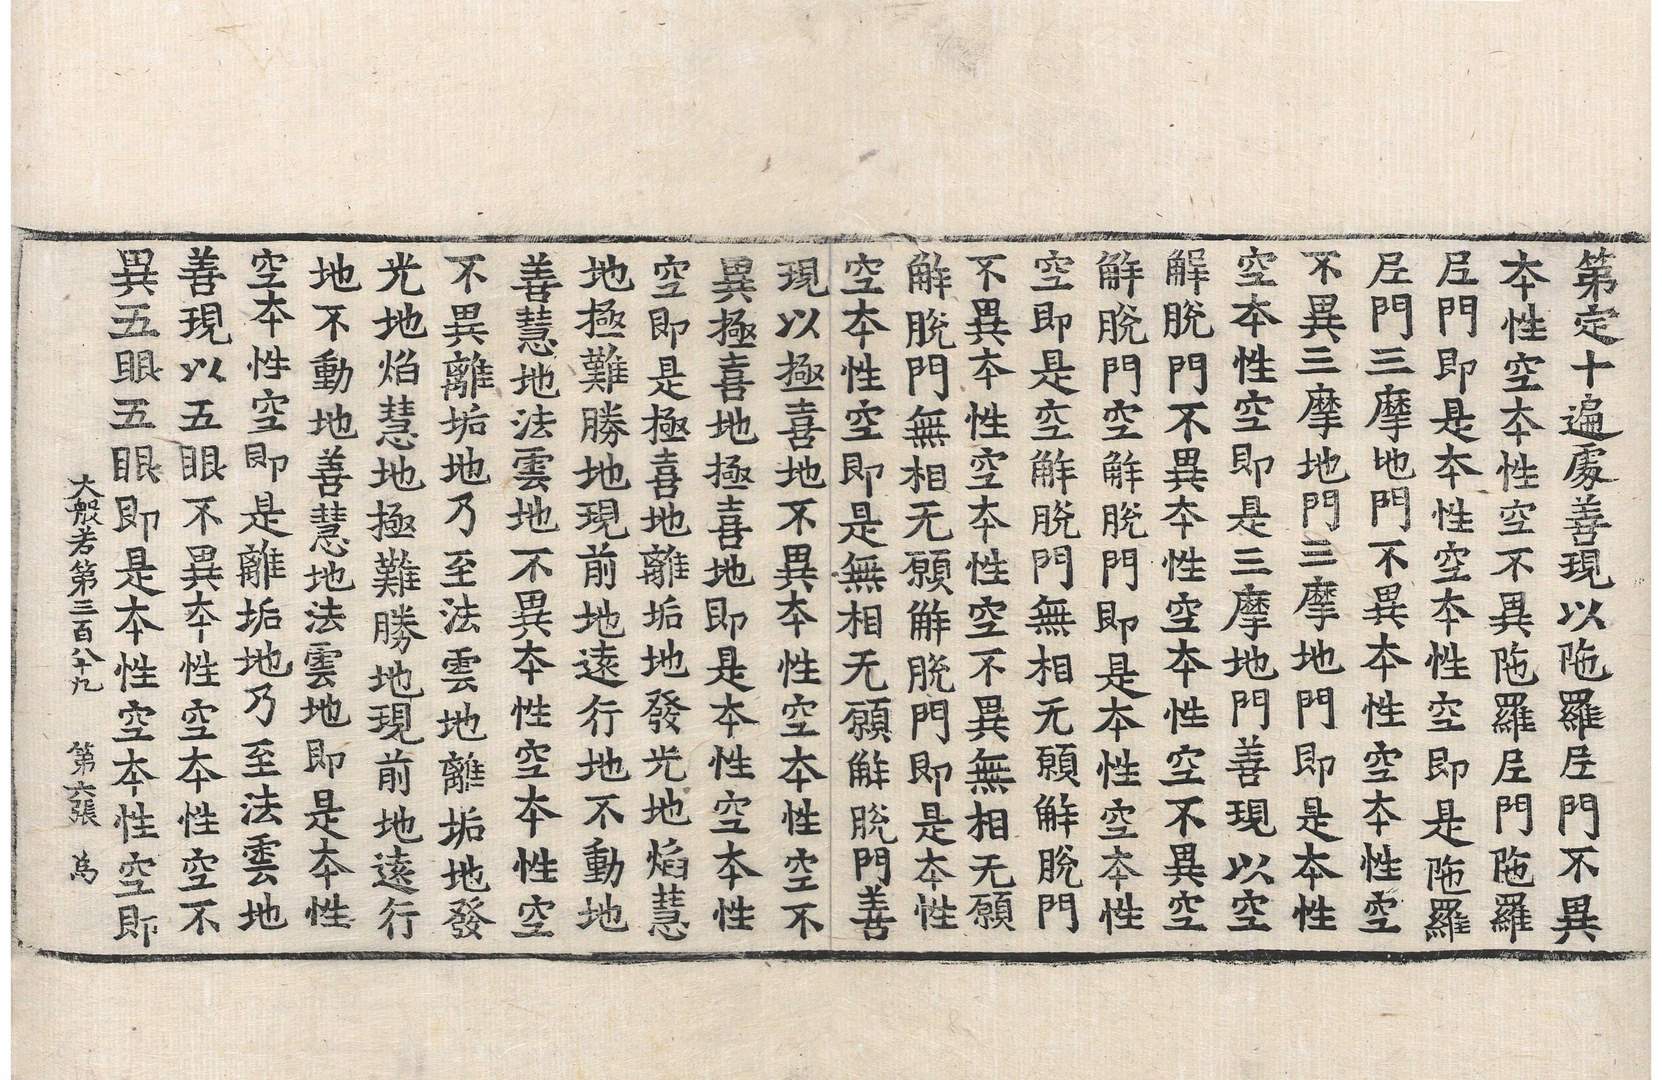 第定十遍處善現以陁羅尼門不異
本性空本性空不異陁羅尼門陁羅
尼門即是本性空本性空即是陁羅
尼門三摩地門不異本性空本性空
不異三摩地門三摩地門即是本性
空本性空即是三摩地門善現以空
解脫門不異本性空本性空不異空
解脫門空解脫門即是本性空本性
空即是空解脫門無相无願解脫門
不異本性空本性空不異無相无願
解脫門無相无願解脫門即是本性
空本性空即是無相无願解脫門善
現以極喜地不異本性空本性空不
異極喜地極喜地即是本性空本性
空即是極喜地離垢地發光地焰慧
地極難勝地現前地遠行地不動地
善慧地法雲地不異本性空本性空
不異離垢地乃至法雲地離垢地發
光地焰慧地極難勝地現前地遠行
地不動地善慧地法雲地即是本性
空本性空即是離垢地乃至法雲地
善現以五眼不異本性空本性空不
異五眼五眼即是本性空本性空即
大般若第三百八十九 第六張 為